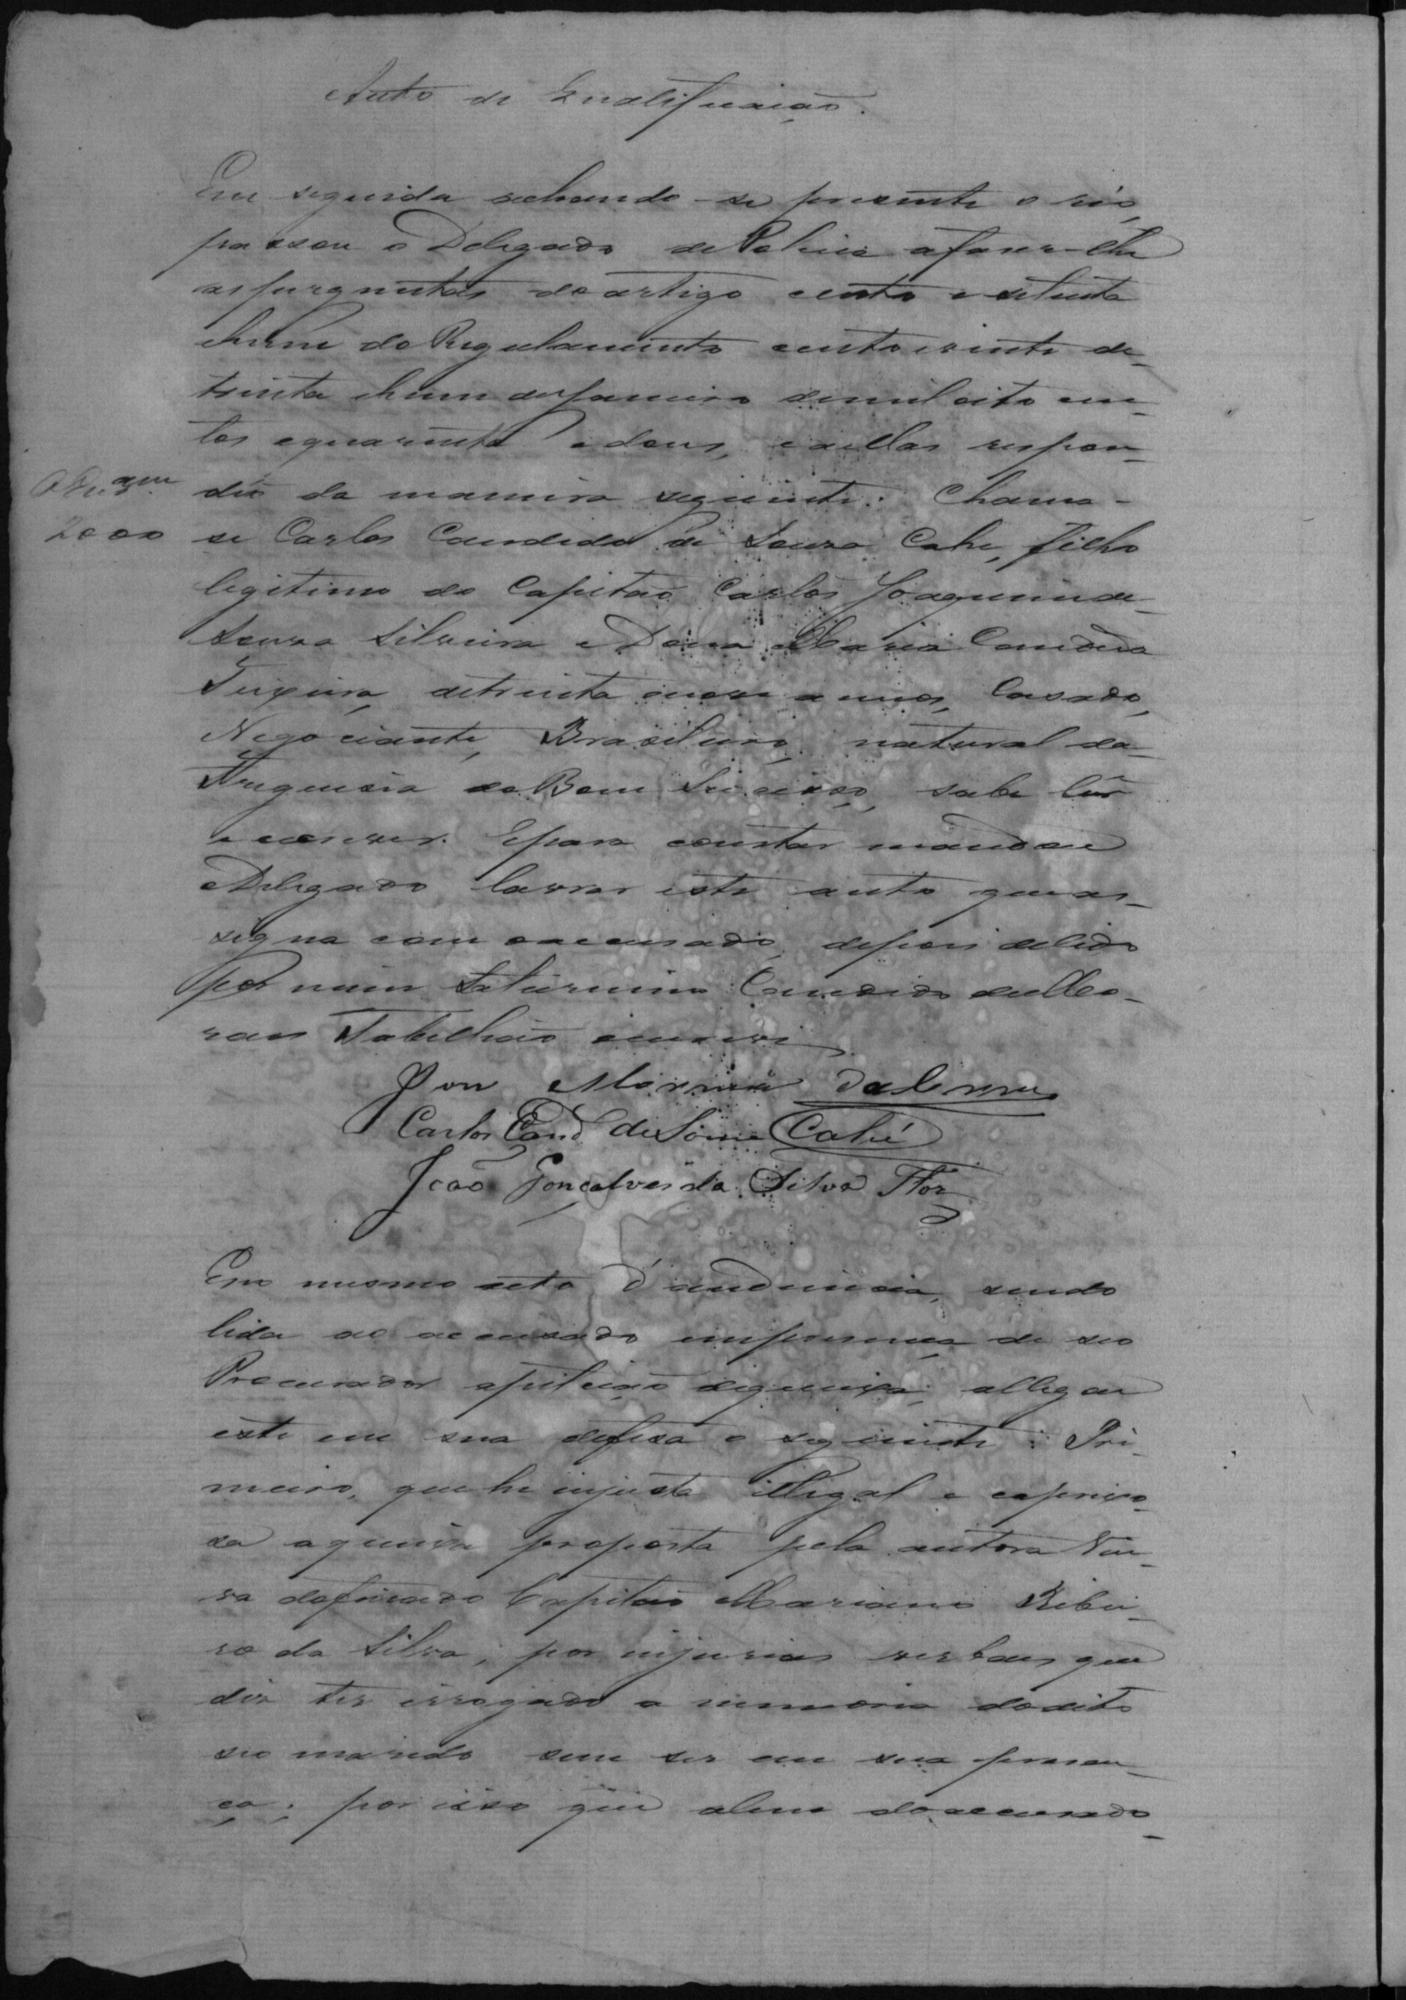 Auto de Qualificação.
Em seguida achando-se presente o réo,
passou o Delegado de Policia a faser-lhe
as perguntas do artigo cento e setenta
e hum do Regulamento cento e vinte de
trinta e hum de Janeiro de mil oito cen-
tos e quarenta e dous, e a ellas respon-
deo da maneira seguinte: Chama-
2000
se Carlos Candido de Souza Cahe, filho
legitimo do Capitão Carlos Joaquim de
Souza Silveira e Dona Maria Candida
Teixeira, de trinta e nove annos, Casado,
Negociante, Brasileiro, natural da
Freguesia do Bom Sucesso, sabe ler
e escrever. E para constar mandou o
Delegado lavrar este auto que as-
signa com o accusado, depois de lido
por mim Saturnino Candido de Mo-
raes Tabelião escrevi
Carlos Cand. de Souza Cahé
João Gonçalves da Silva Flor
Em mesmo acto d'audiencia, sendo
lida ao accusado em presença de seo
Procurador a petição de queixa, allegou
este em sua defesa o seguinte: Pri-
meiro, que he injusta illegal e caprixo-
sa a queixa proposta pela autora Viu-
va do finado Capitão Mariano Ribei-
ro da Silva, por injurias verbaes que
diz ter irrogado a memoria do dito
seo marido sem ser em sua presen-
ça; por isso que alem do accusado